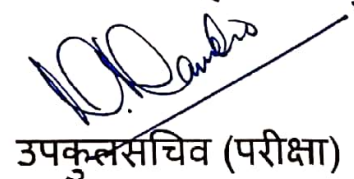 उपकुलसचिव (परीक्षा)